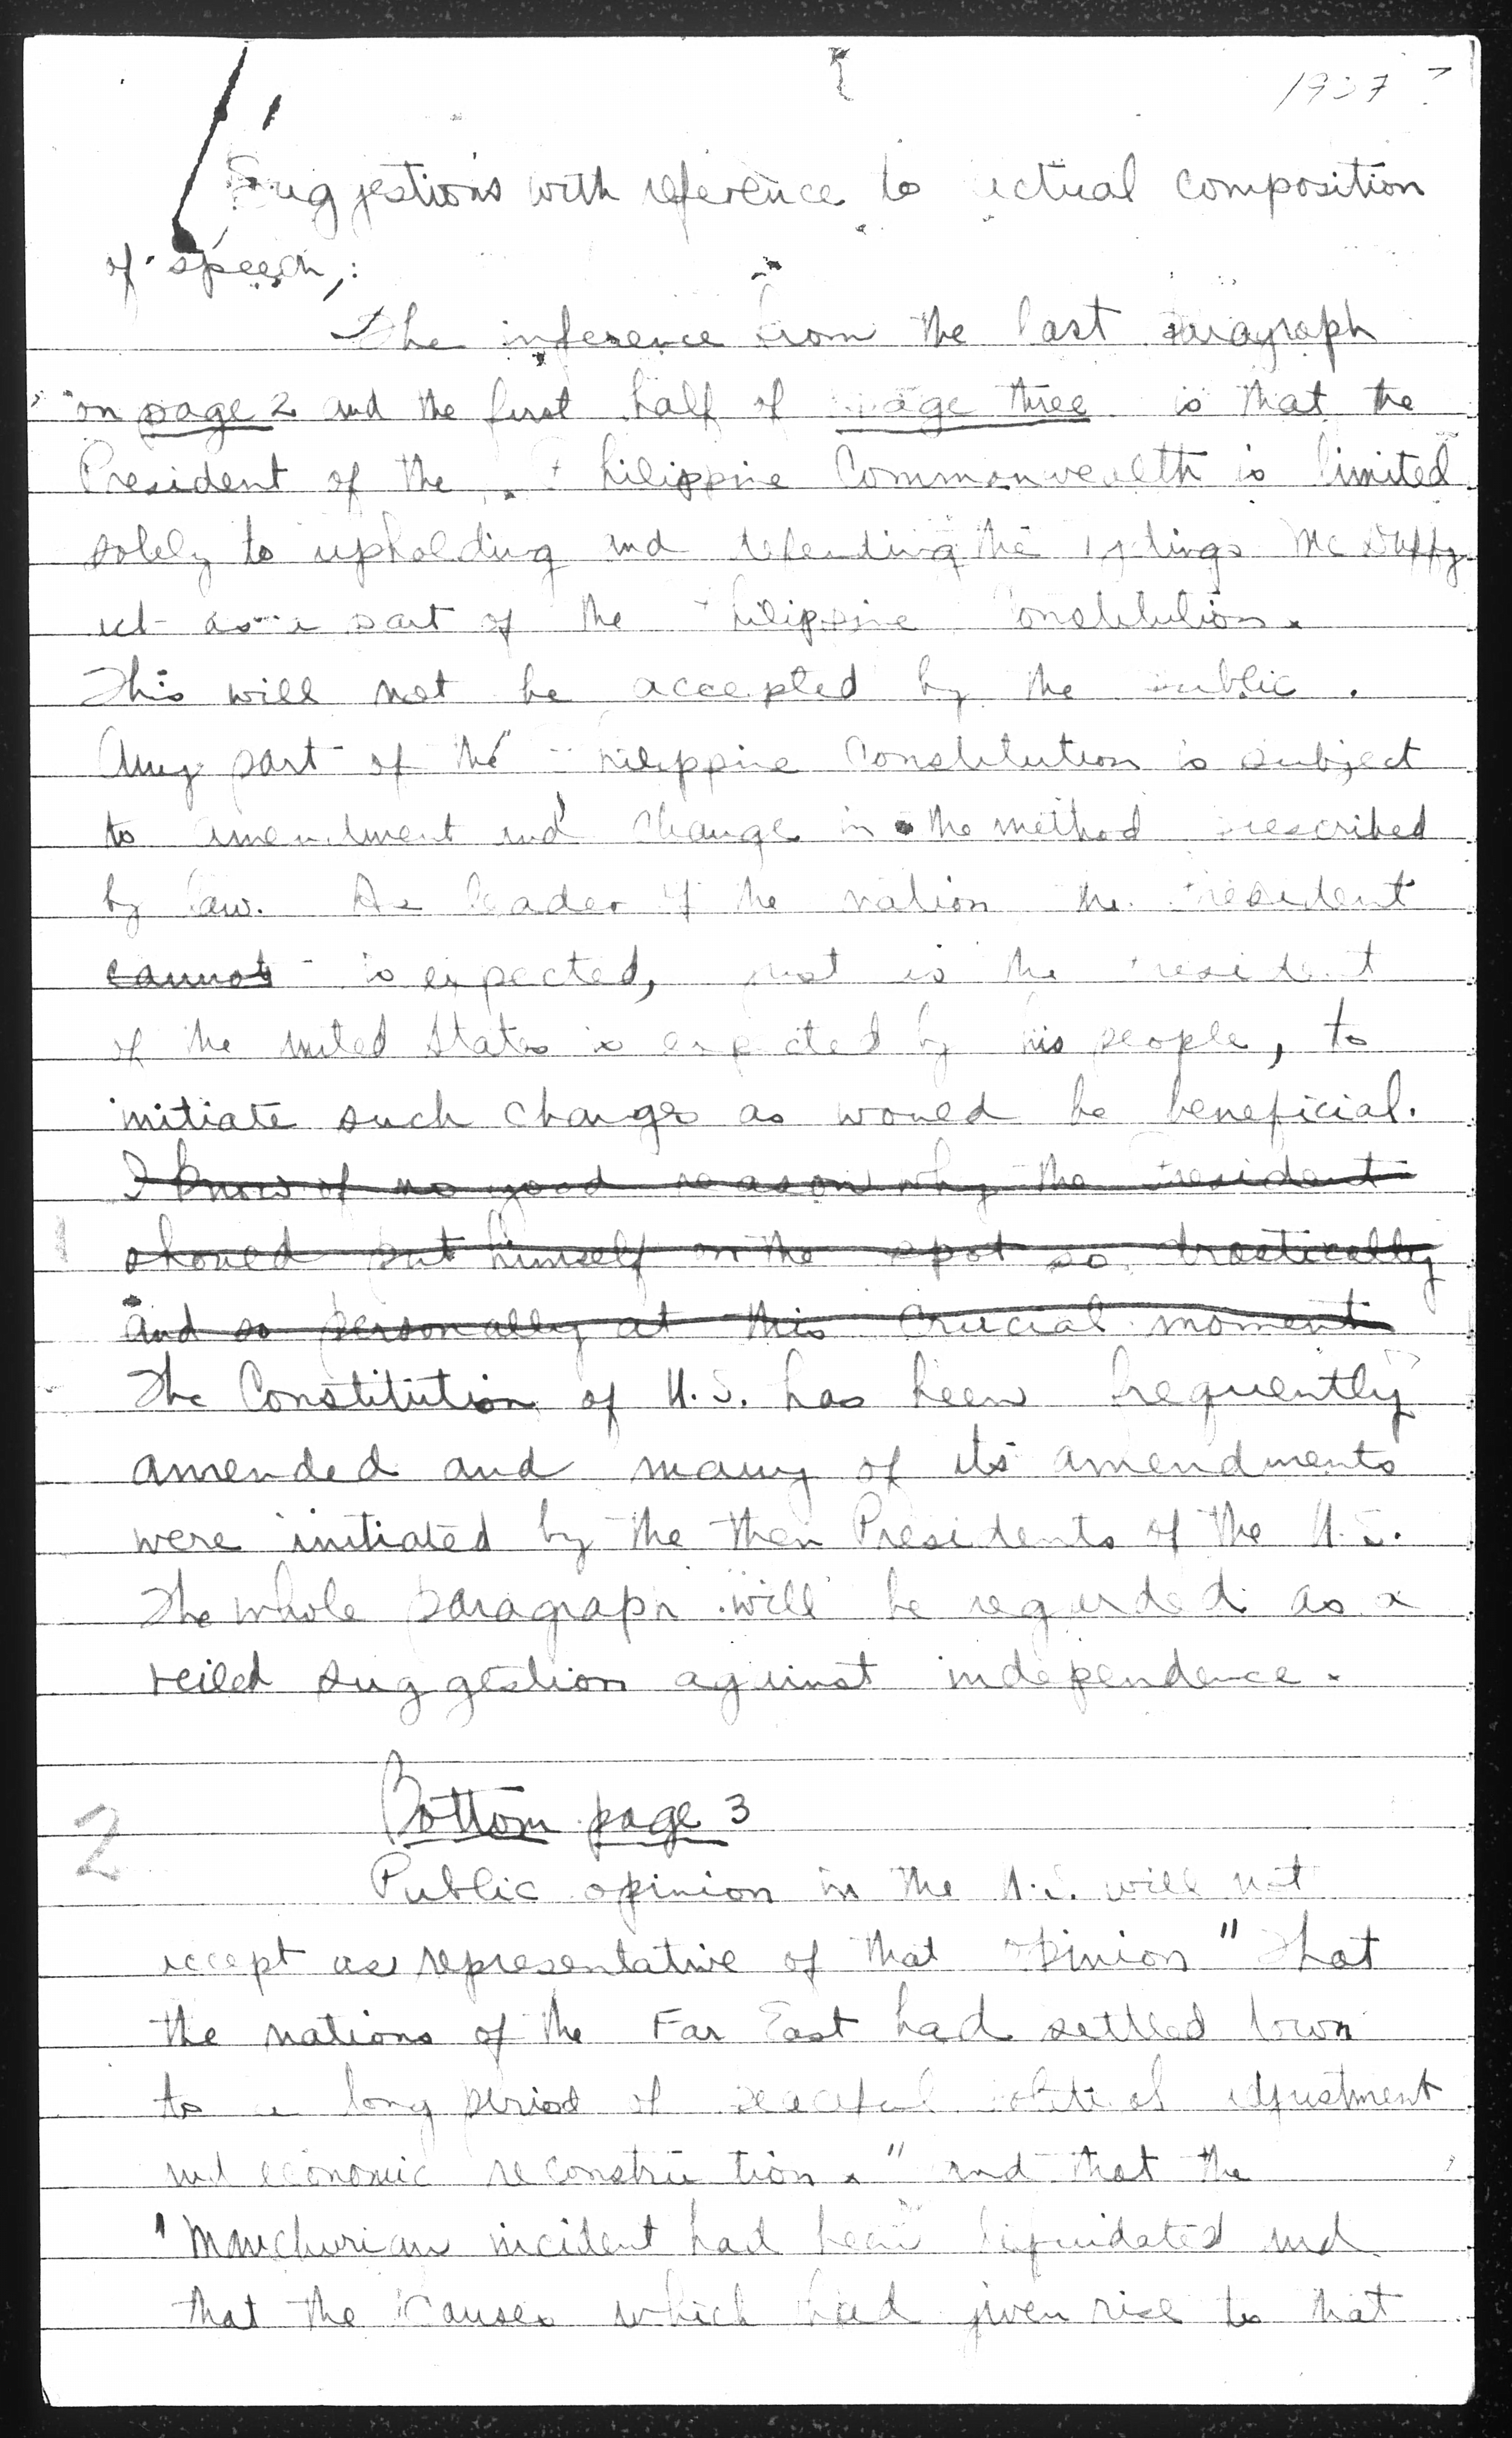 1937?
Suggestions with reference to actual composition
of speech,:
The inference from the last paragraph
on page 2 and the first half of page three is that the
President of the Philippine Commonwealth is limited
solely to upholding and defending the Tydings McDuffy
act as a part of the Philippine Constitution.
This will not be accepted by the public.
Any part of the Philippine Constitution is subject
to amendment and change in the method prescribed
by law. As leader of the nation the President
cannot is expected, just as the President
of the United States is expected by his people, to
initiate such changes as would be beneficial.
I know of no good reason why the President
should put himself on the spot so drastically
and so personally at this crucial moment
The Constitution of U.S. has been frequently
amended and many of its amendments
were initiated by the then Presidents of the U.S.
The whole paragraph will be regarded as a
veiled suggestion against independence.
Bottom page 3
2
Public opinion in the U.S. will not
accept as representative of that opinion "That
the nations of the Far East had settled down
to a long period of peaceful political adjustment
and economic reconstruction." and that the
"Manchurian incident had been liquidated and
that the causes which had given rise to that